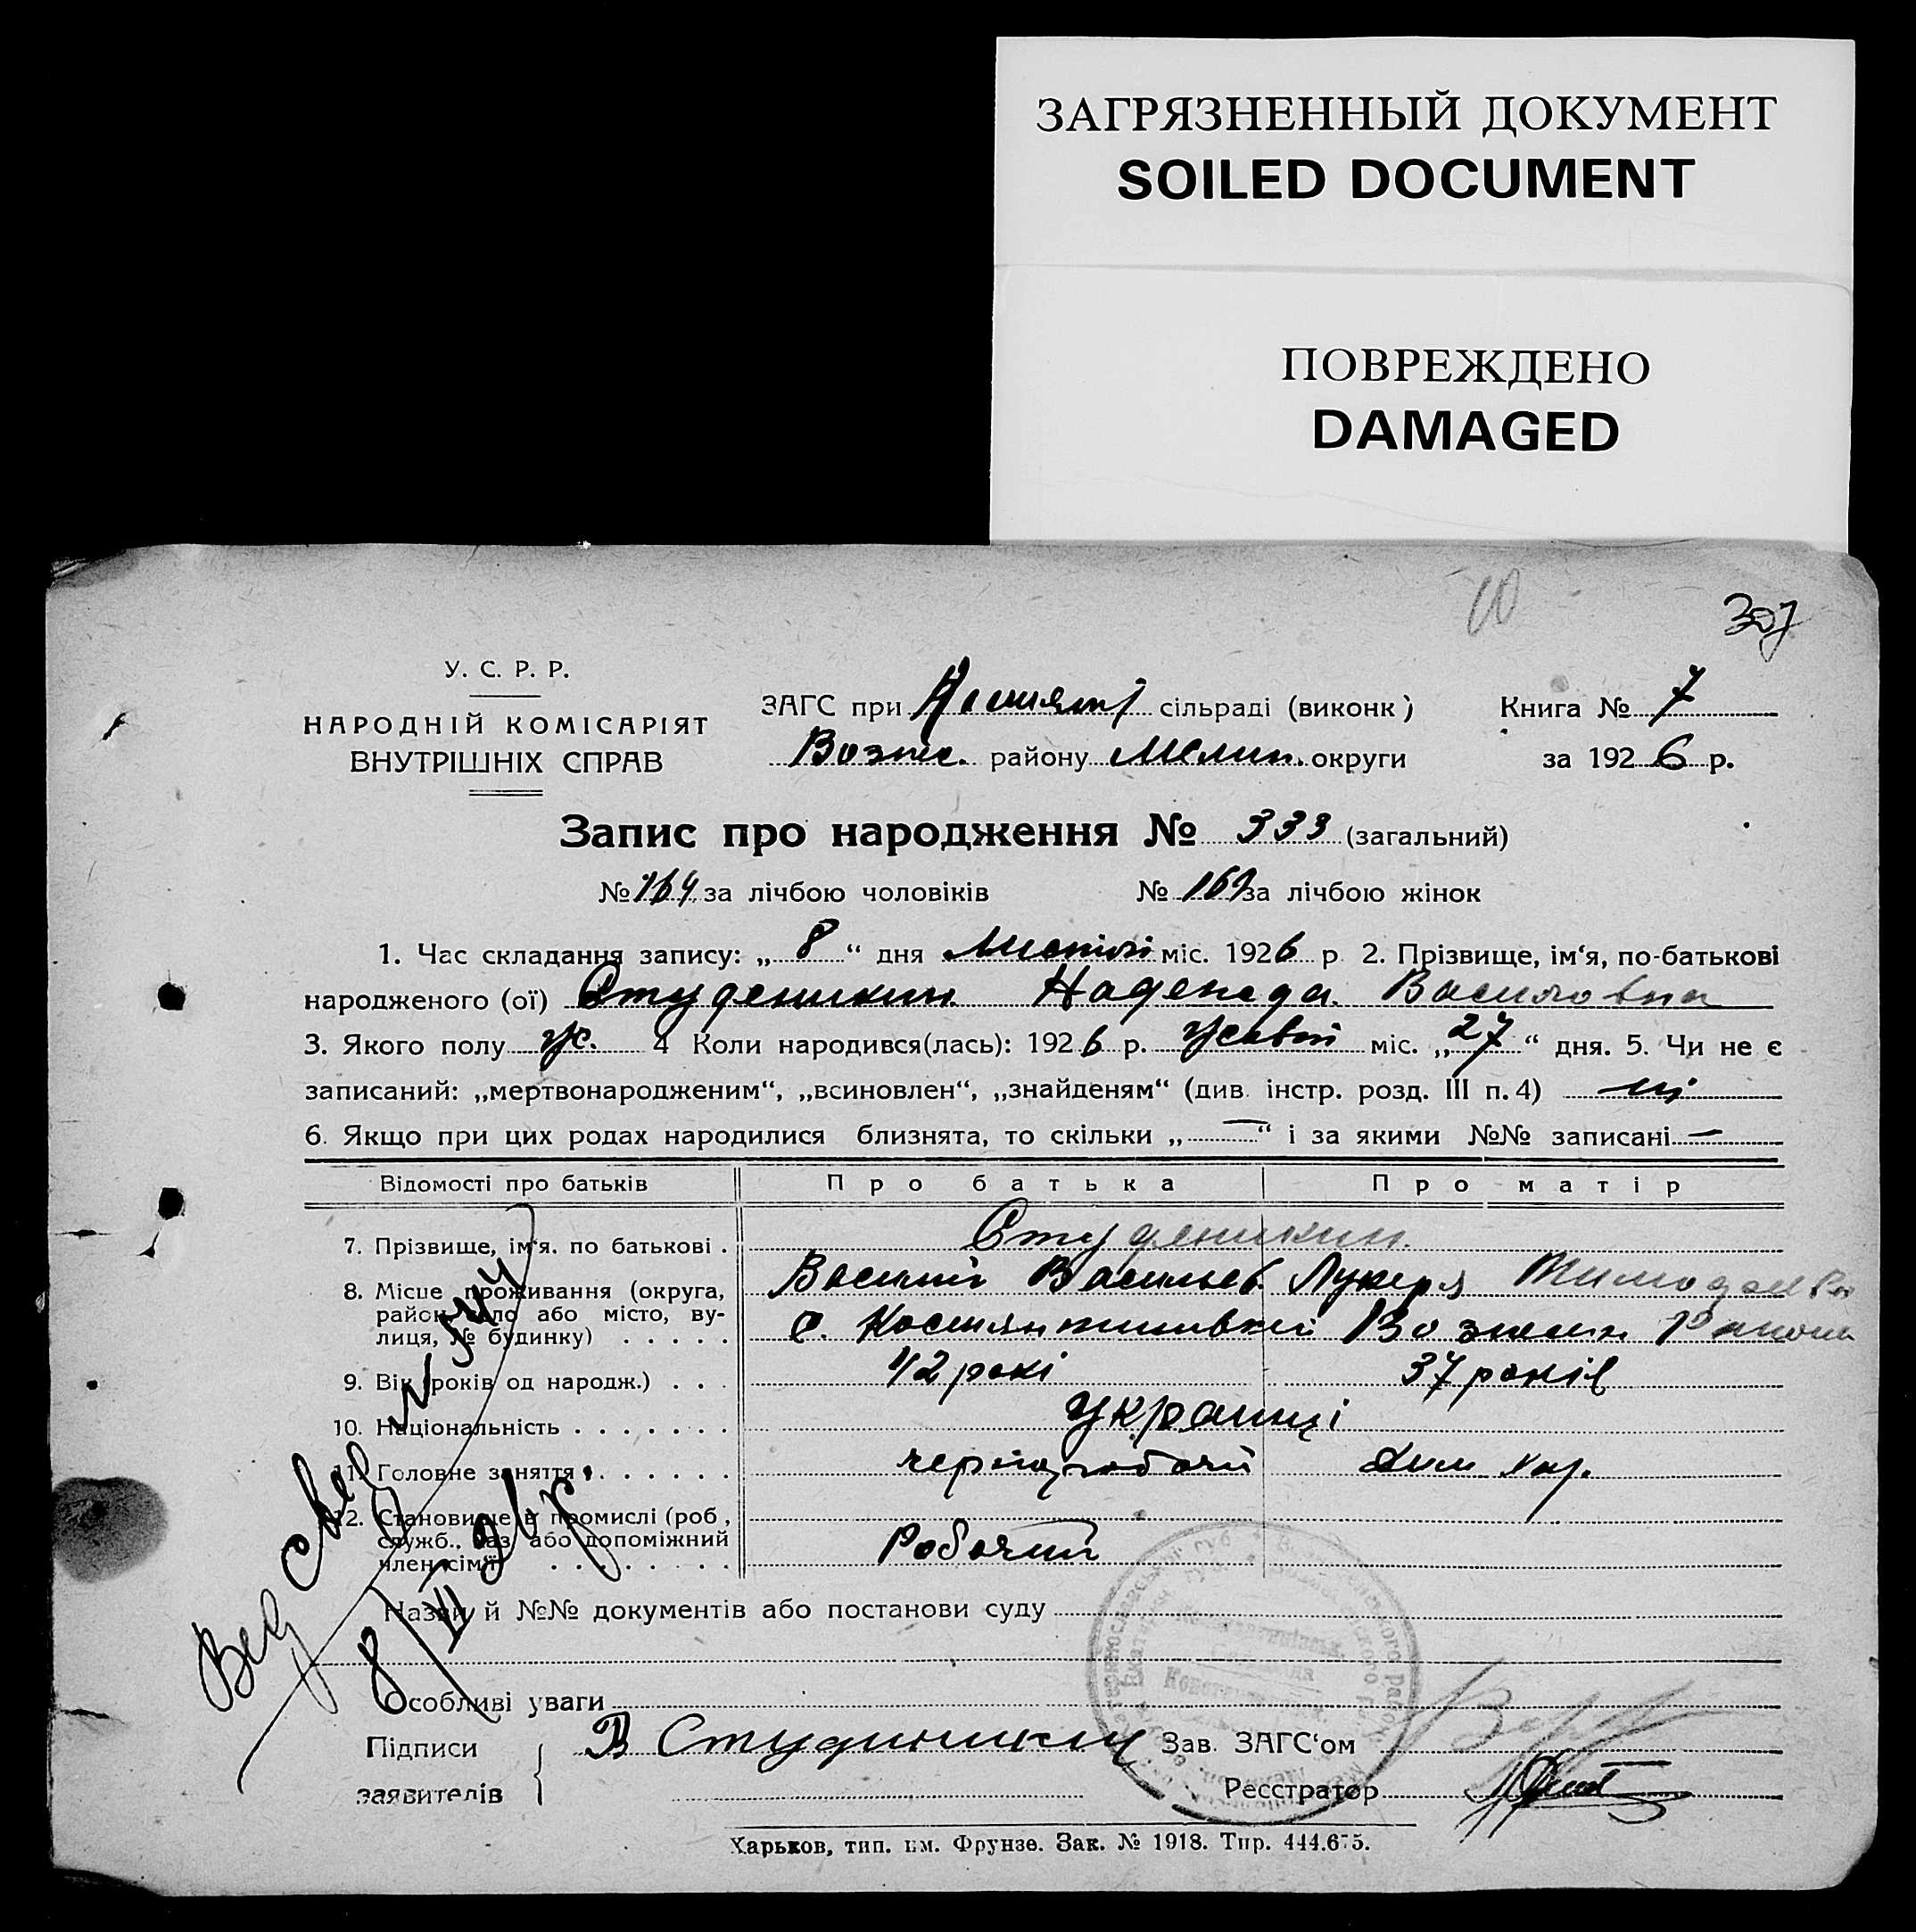 ЗАГРЯЗНЕННЫЙ ДОКУМЕНТ
SOILED DOCUMENT
ПОВРЕЖДЕНО
DAMAGED
10
307
У. С. Р. Р.
НАРОДНІЙ КОМІСАРІЯТ
ВНУТРІШНІХ СПРАВ
ЗАГС при сільраді (виконк)
Вознес. району Мелит. округи
Книга № 7
за 1926 р.
Запис про народження № 333 (загальний)
№ 164 за лічбою чоловіків № 169 за лічбою жінок
1. Час складання запису: „ 8 “ дня міс. 1926 р. 2. Прізвище, ім‘я, по-батькові
народженого (ої) Студеникин Надежда Василовна
3. Якого полу ж. 4 Коли народився(лась): 1926 р. Жовтн міс. „ 27 “ дня. 5. Чи не є
записаний: „мертвонародженим“, „всиновлен“, „знайденям“ (див. інстр. розд. III п. 4) ні
6. Якщо при цих родах народилися близнята, то скільки „ — “ і за якими №№ записані —
Відомості про батьків Про батька Про матір
7. Прізвище, ім‘я. по батькові . Студеникин
Василий Васильев. Лукеря
8. Місце проживання (округа,
район, село або місто, ву-
лиця, № будинку) . . . . . с. Костянтинівки
9. Вік (років од народж.) . . . 42 рокі 37 років
10. Національність . . . . . . . Українці
11. Головне заняття . . . . . . чернороботчий дом хаз.
12. Становище в промислі (роб,
служб., хаз. або допоміжний
член сім‘ї) . . . . . . . . Робочий
Назви й №№ документів або постанови суду
Особливі уваги
Підписи
заявителів
В Студиникин
Зав. ЗАГС‘ом
Реєстратор
Харьков, тип. им. Фрунзе. Зак. № 1918. Тир. 444.675.